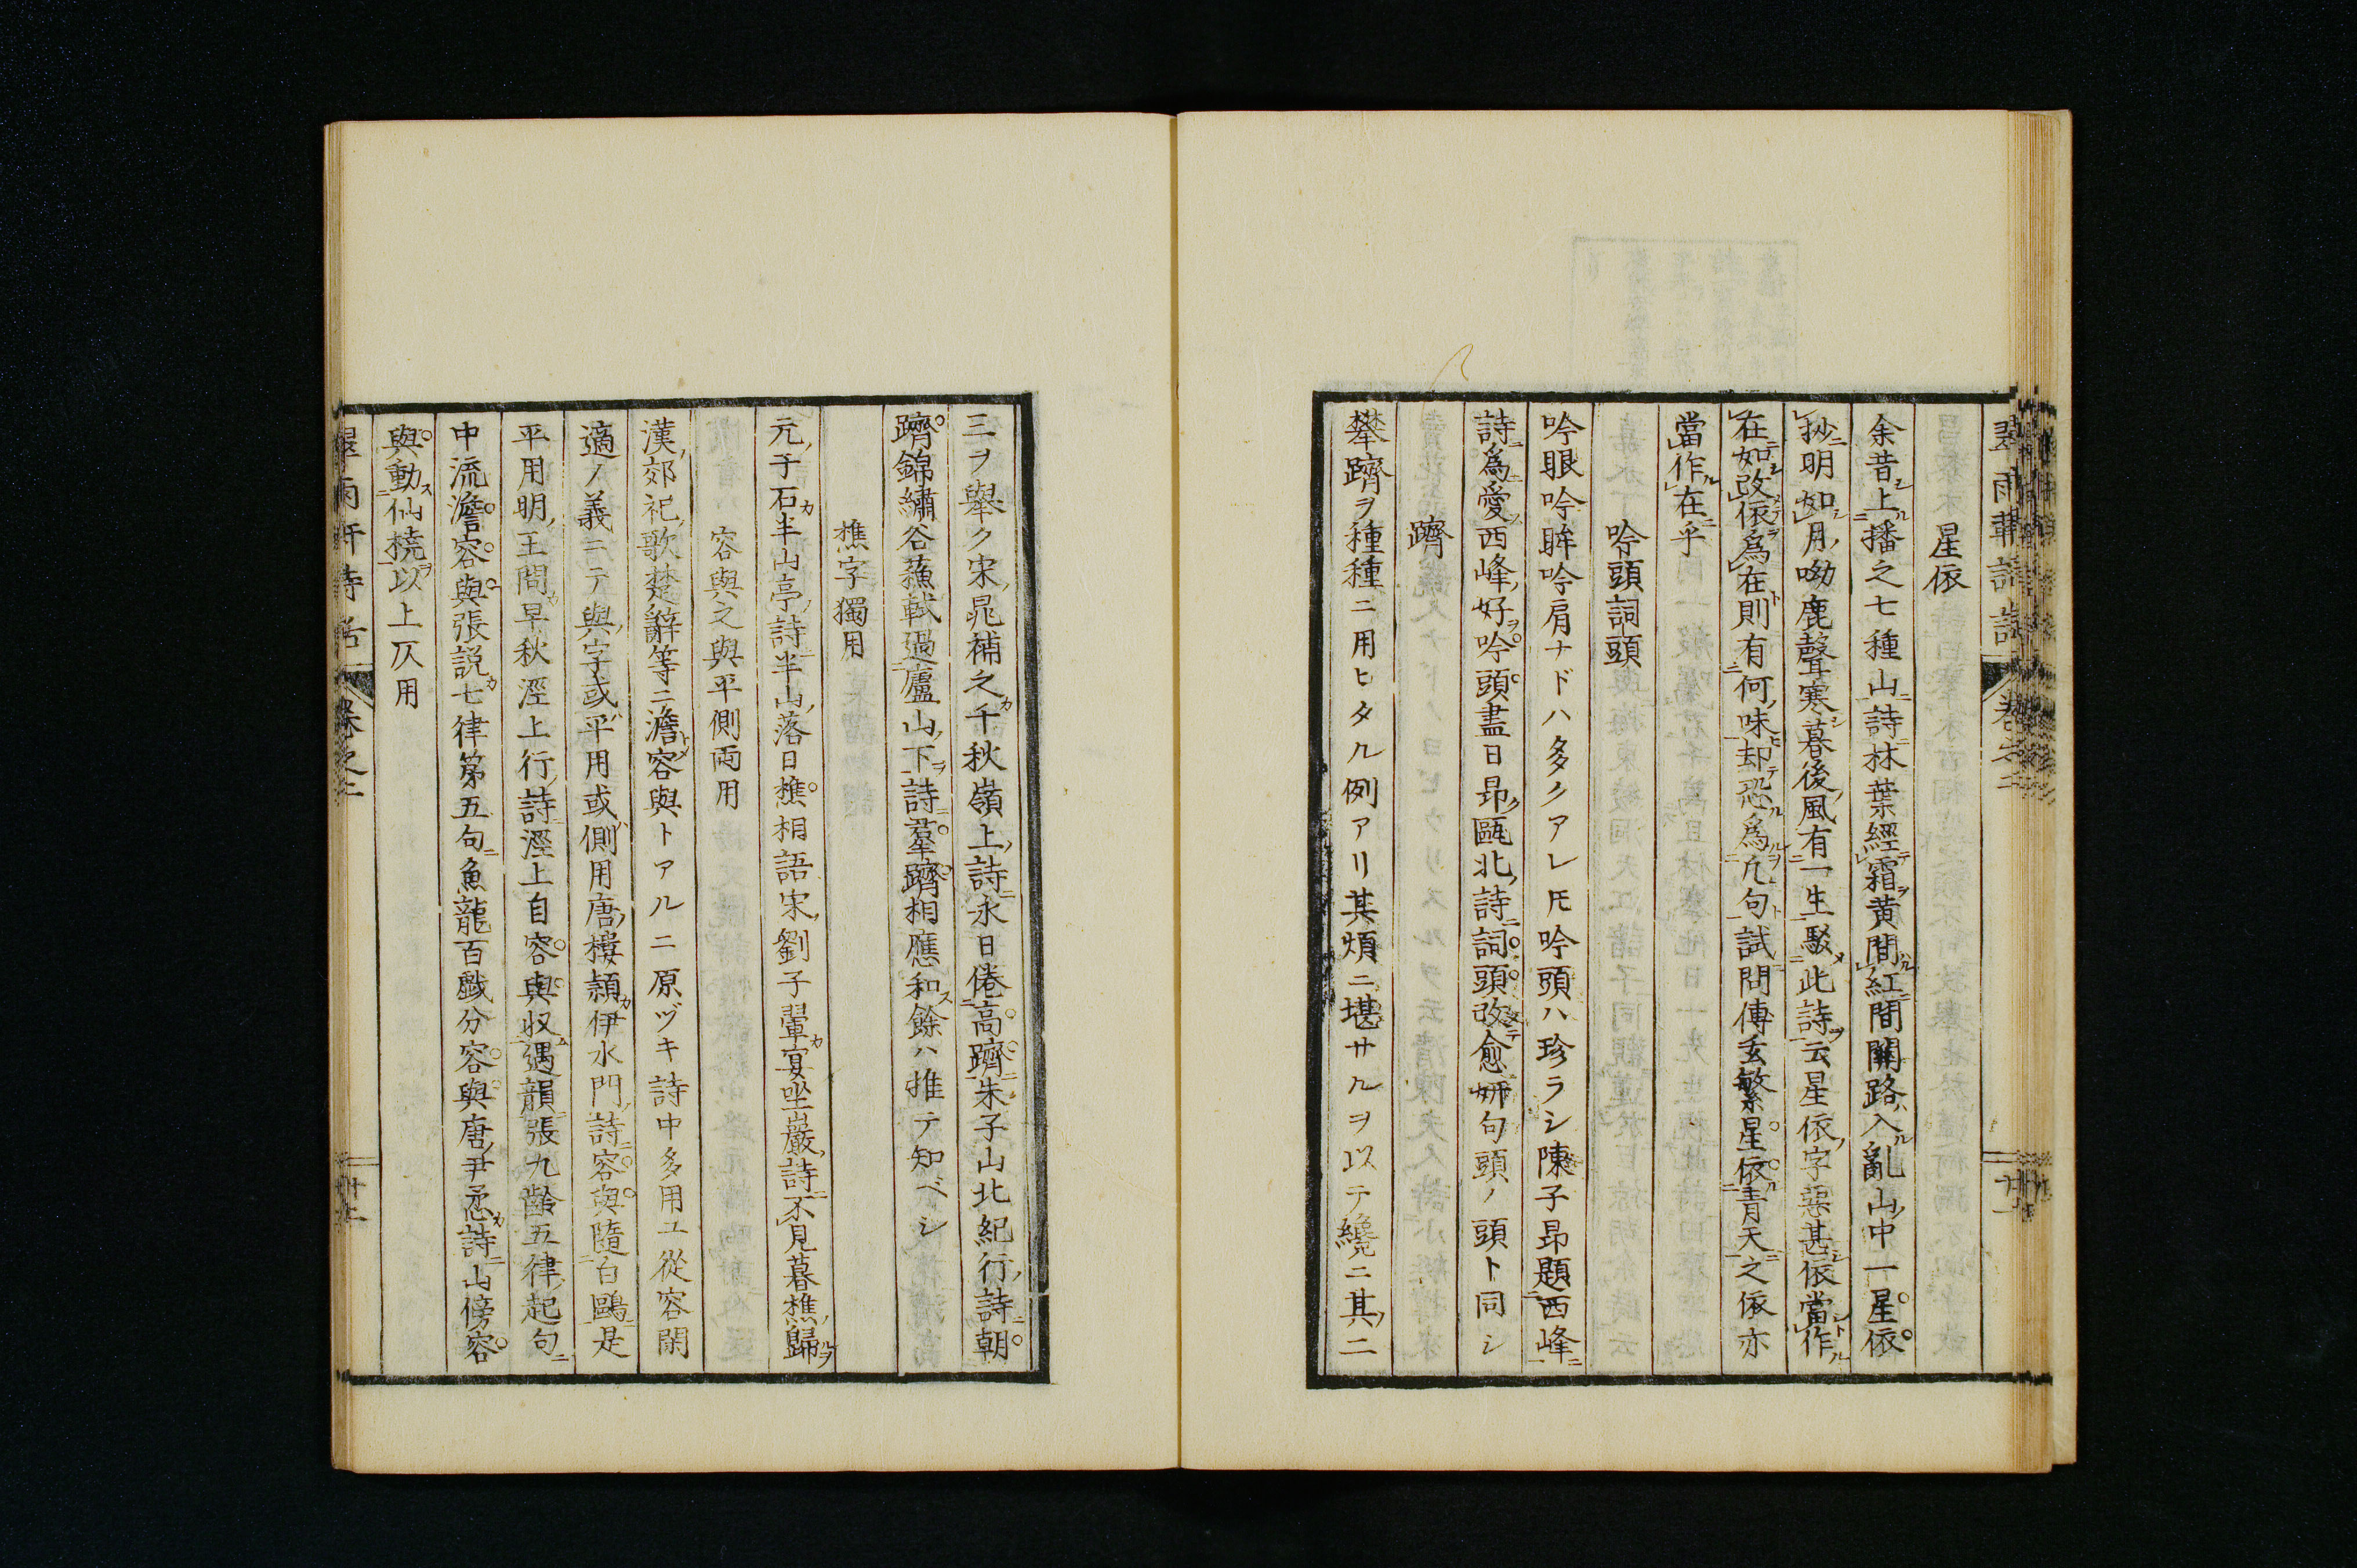 星依
余昔上播之七種山詩林葉經霜黄間紅間關路入亂山中一星依
抄明如月呦鹿聲寒暮後風有一生駁此詩云星依字惡甚依當作
在如改依爲在則有何味却恐爲凡句試問傳玄繁星依青天之依亦
當作在乎
吟頭詞頭
吟眼吟眸吟肩ナドハ多クアレ𪜈吟頭ハ珍ラシ陳子昂題西峰
詩爲愛西峰好吟頭盡日昂甌北詩詞頭改愈妍句頭ノ頭ト同シ
躋
攀躋ヲ種種ニ用ヒタル例アリ其煩ニ堪サルヲ以テ纔ニ其二
三ヲ舉ク宋晁補之千秋嶺上詩永日倦高躋朱子山北紀行詩朝
躋錦繡谷蘓軾過廬山下詩羣躋相應和餘ハ推テ知ベシ
樵字獨用
元子石半山亭詩半山落日樵相語宋劉子翬宴坐巖詩不見暮樵歸
容與之與平側両用
漢郊祀歌楚辭等ニ澹容與トアルニ原ヅキ詩中多用ユ從容閑
適ノ義ニテ與字或平用或側用唐樓頴伊水門詩容與隨白鷗是
平用明王問早秋溼上行詩溼上自容與収遇韻張九齡五律起句
中流澹容與張説七律第五句魚龍百戯分容與唐尹懋詩山傍容
與動仙橈以上仄用
翠雨軒詩話 卷之二